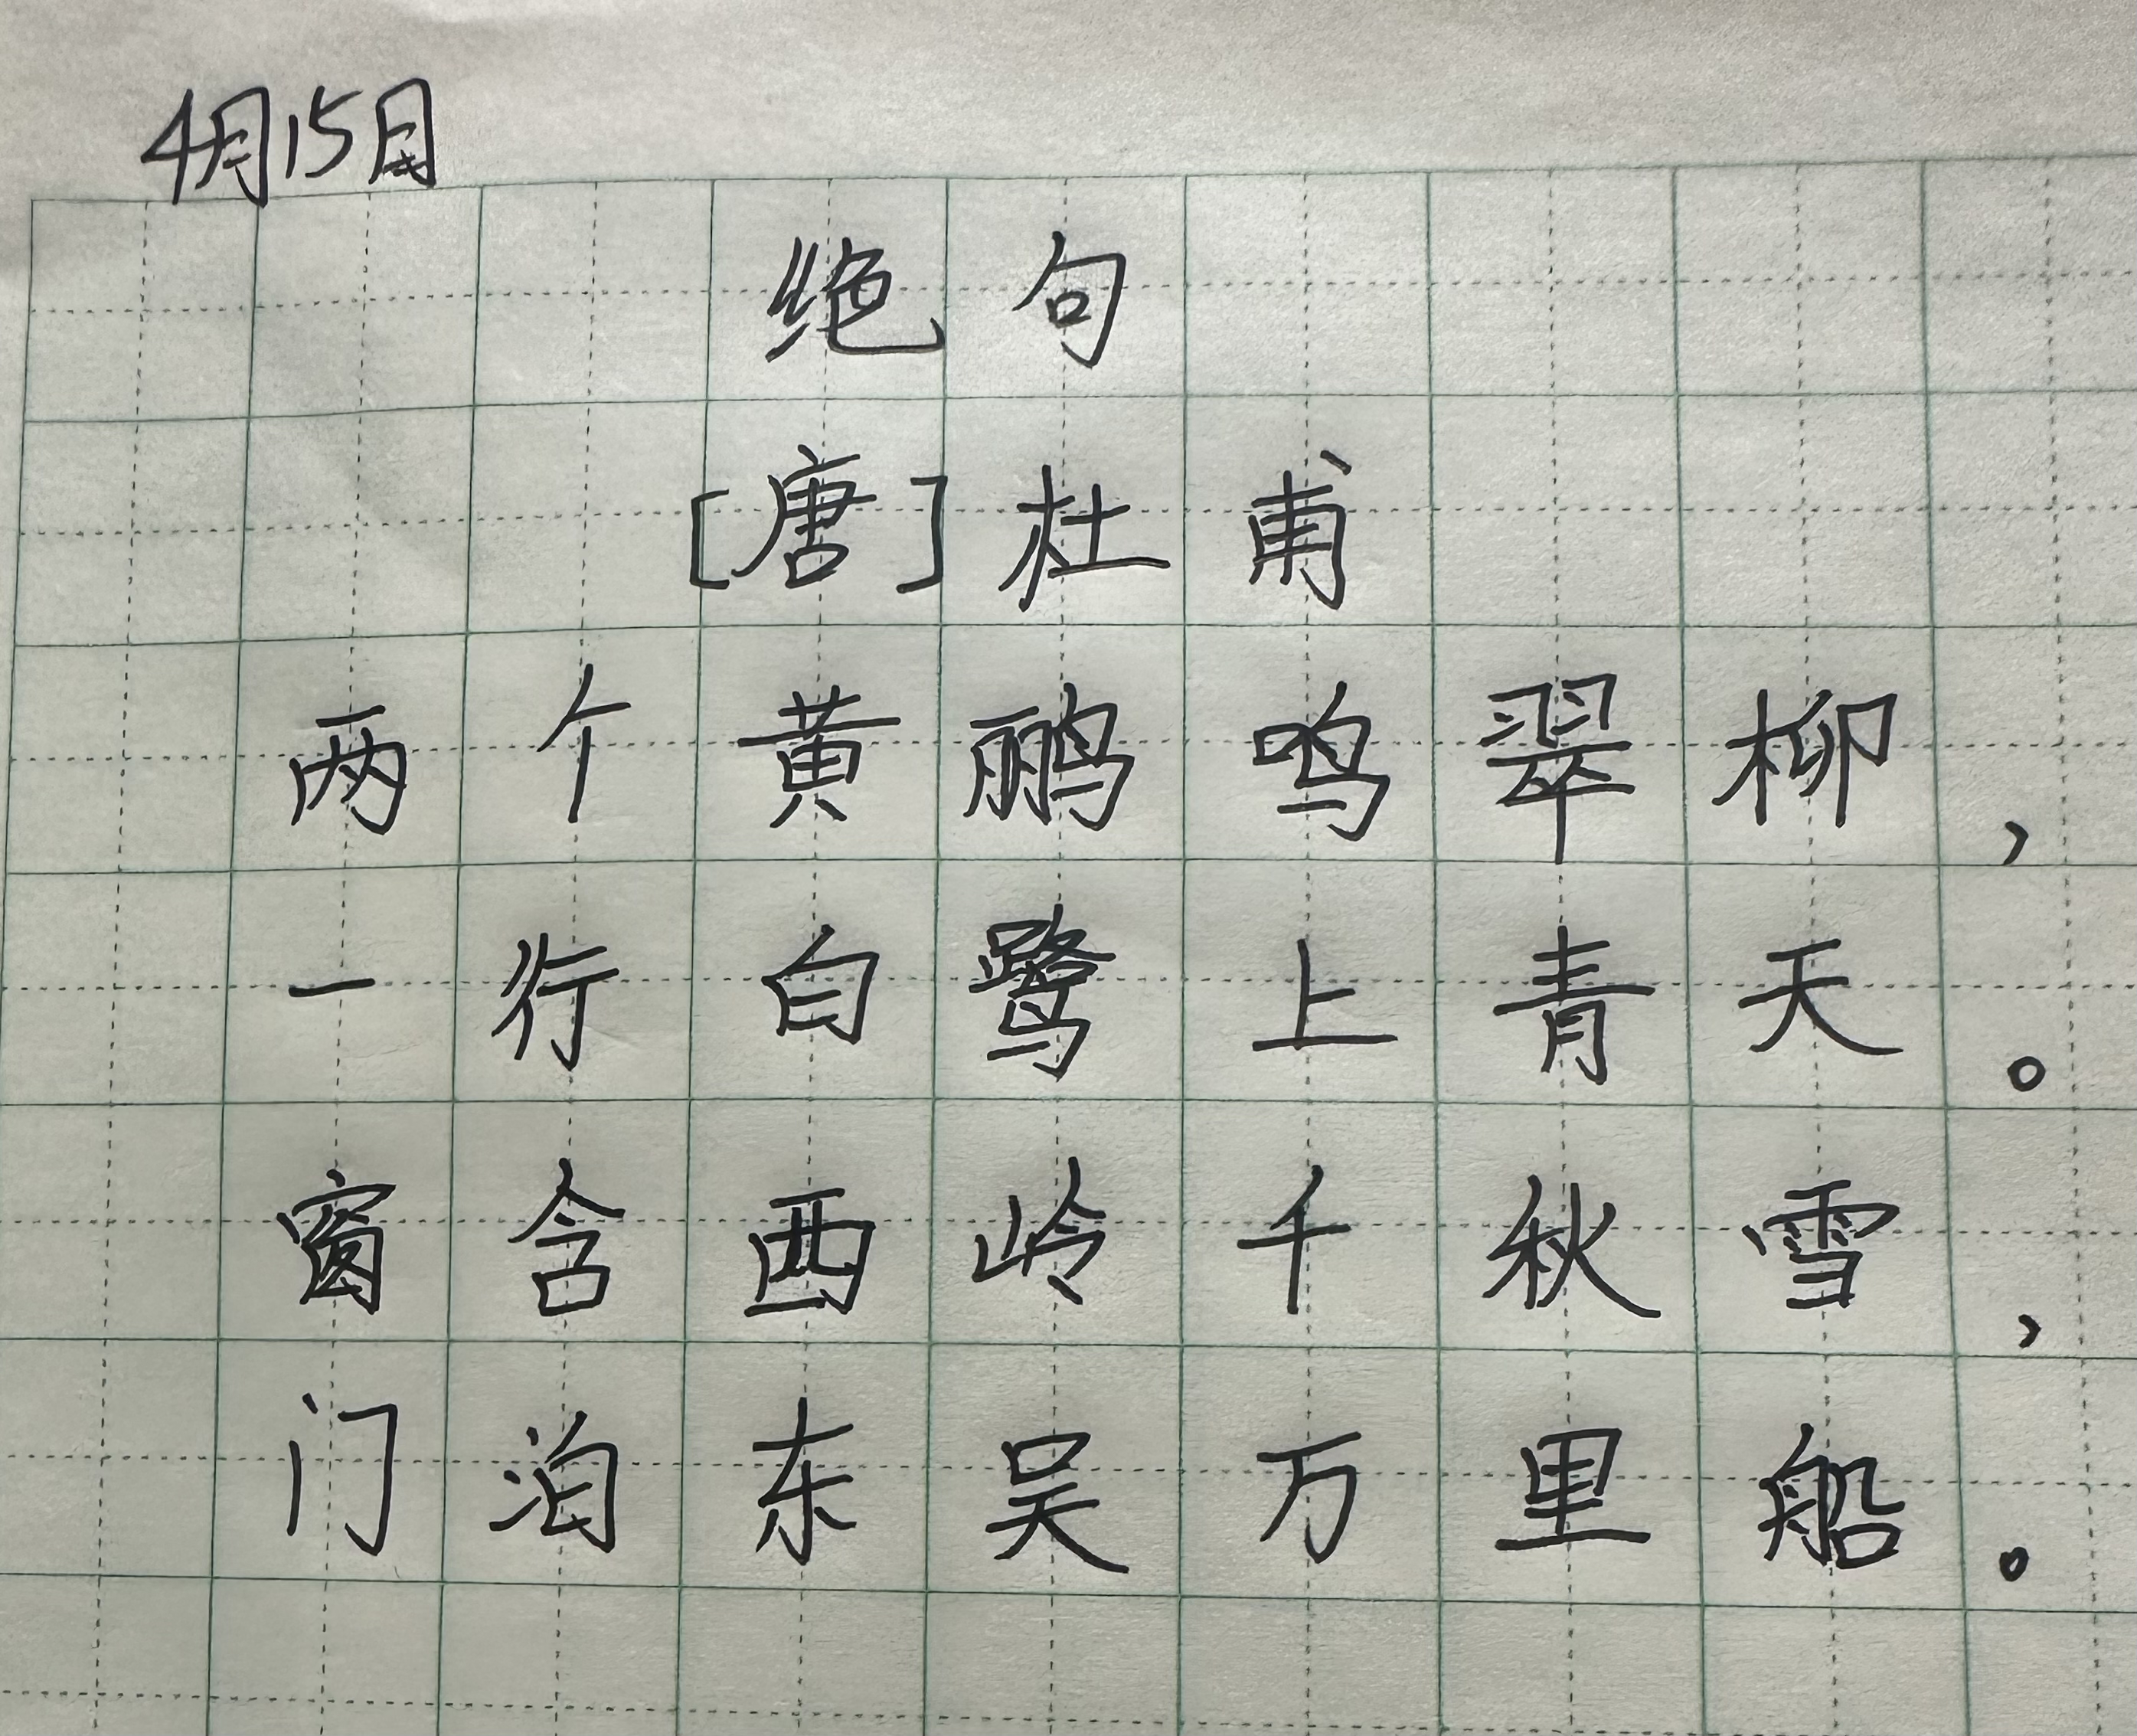 4月15日
绝句
[唐]杜甫
两个黄鹂鸣翠柳,
一行白鹭上青天。
窗含西岭千秋雪,
门泊东吴万里船。